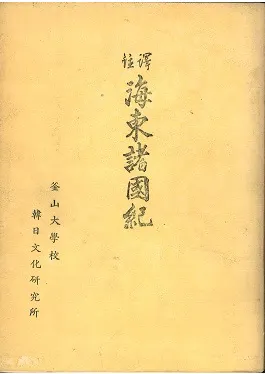 譯註
海東諸國紀
釜山大學校
韓日文化硏究所